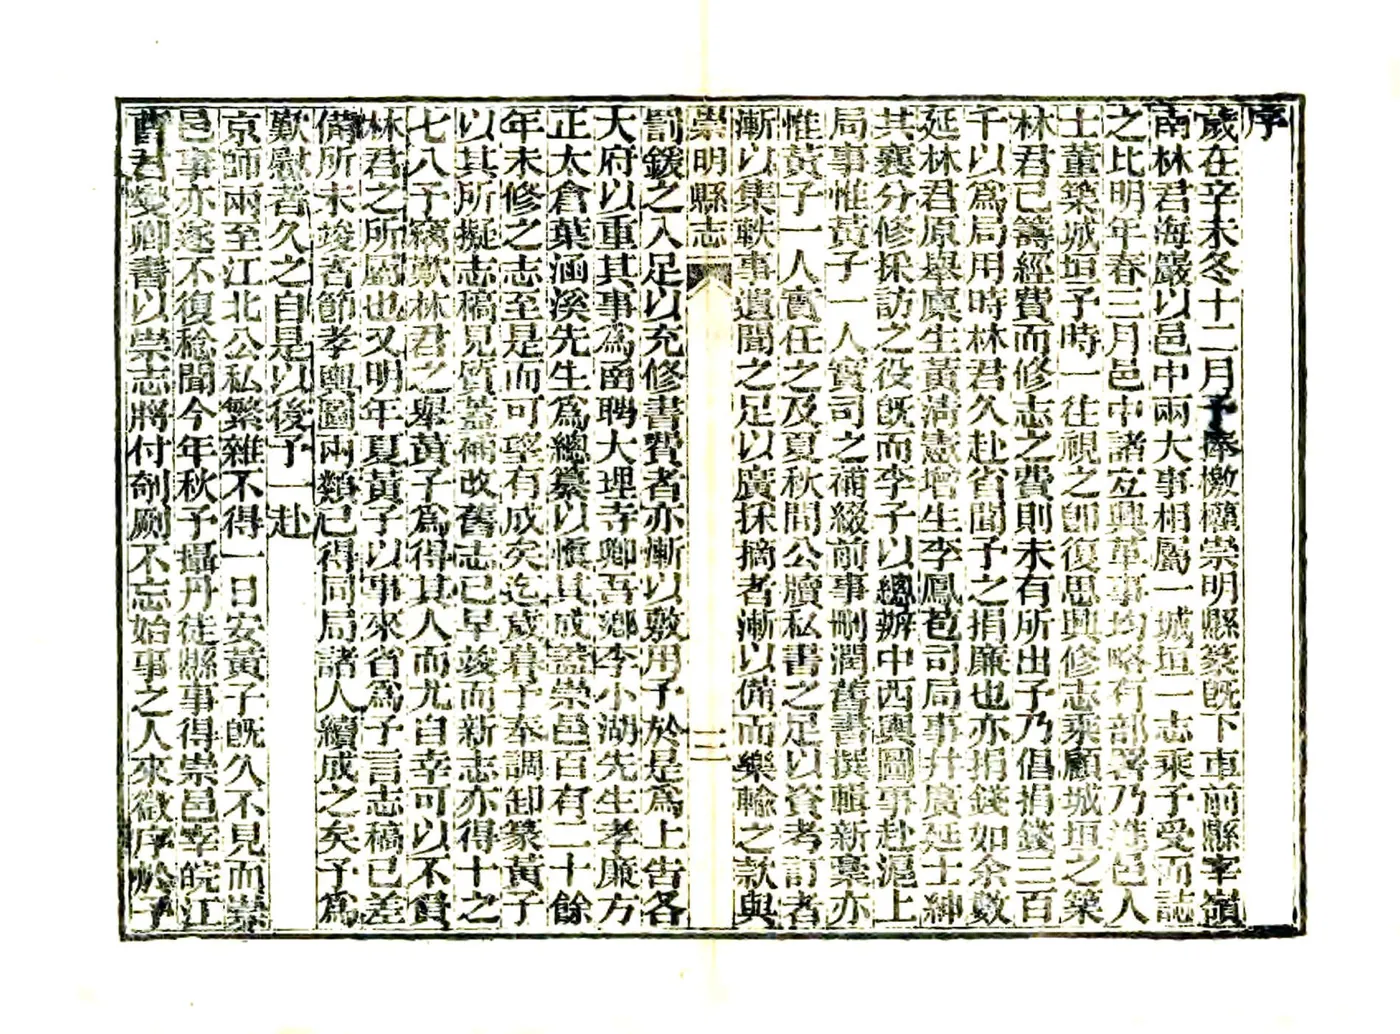 序
歲在辛未冬十二月予奉檄權崇明縣篆旣下車前縣宰嶺
南林君海巖以邑中兩大事相屬一城垣一志乘予受而誌
之比明年春三月邑中諸亙興革事均略有部署乃進邑人
士董築城垣予時一往視之卽復思興修志乘顧城垣之築
林君已籌經費而修志之費則未有所出予乃倡捐錢三百
千以爲局用時林君久赴省聞予之捐廉也亦捐錢如余數
延林君原舉廩生黃清憲增生李鳳苞司局事幷廣延士紳
其襄分修採訪之役旣而李子以總辦中西輿圖事赴滬上
局事惟黃子一人實司之補綴前事刪潤舊書撰輯新稾亦
惟黃子一人實任之及夏秋間公牘私書之足以資考訂者
漸以集軼事遺聞之足以廣採摘者漸以備而樂輸之款與
崇明縣志
三
罰鍰之入足以充修書費者亦漸以敷用予於是爲上告各
大府以重其事爲啇聘大理寺卿吾鄉李小湖先生孝廉方
正太倉葉涵溪先生爲總纂以愼其成蓋崇邑百有二十餘
年未修之志至是而可望有成矣迄歲暮予奉調卸篆黃子
以其所擬志稿見質蓋補改舊志已早竣而新志亦得十之
七八予竊歎林君之舉黃子爲得其人而尤自幸可以不負
林君之所屬也又明年夏黃子以事來省爲予言志稿已差
備所未竣者節孝輿圖兩類已得同局諸人續成之矣予爲
歎慰者久之自是以後予一赴
京師兩至江北公私繁雜不得一日安黃子旣久不見而崇
邑事亦遂不復稔聞今年秋予攝丹徒縣事得崇邑宰皖江
曹君夔卿書以崇志將付剞劂不忘始事之人來徵序於予